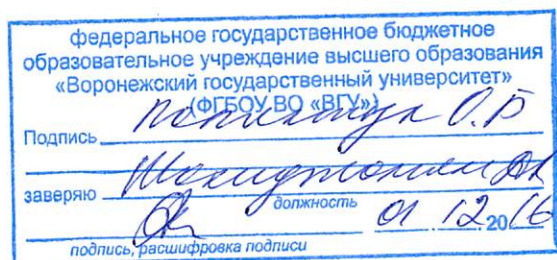 федеральное государственное бюджетное
образовательное учреждение высшего образования
«Воронежский государственный университет»
(ФГБОУ ВО «ВГУ»)
Подпись О.Б
заверяю
должность
01 12 20 16
подпись, расшифровка подписи